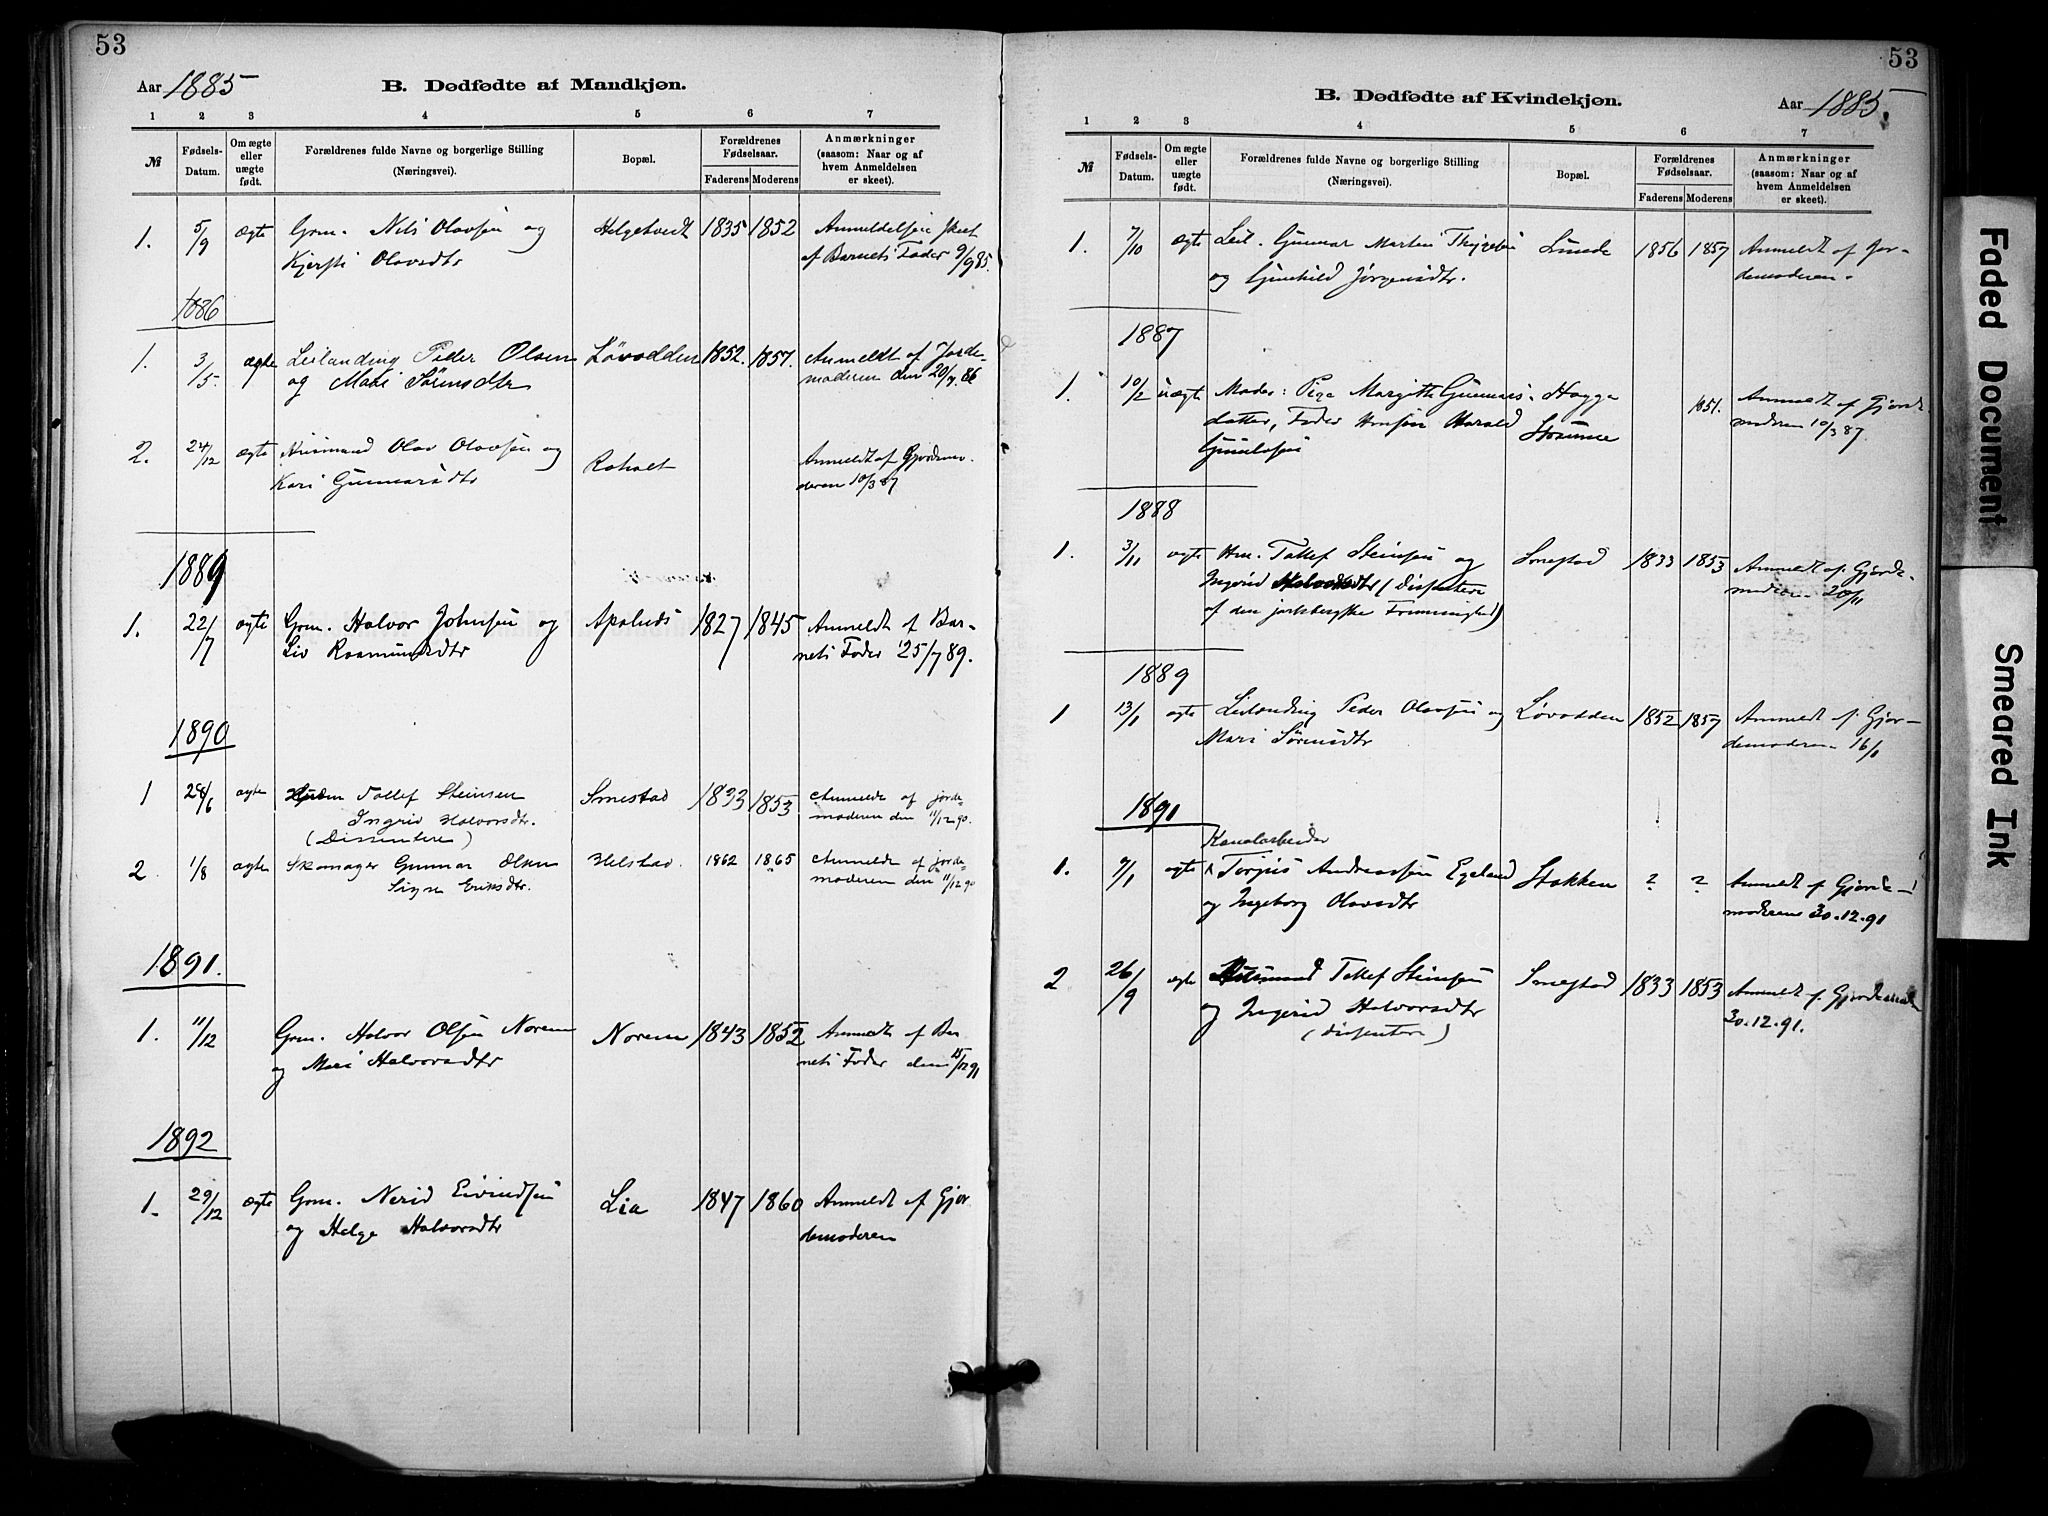 53
Aar 1885
B. Dødfødte af Mandkjøn.
1 2 3 4 5 6 7
№ Fødsels-Datum. Om ægte eller uægte født. Forældrenes fulde Navne og borgerlige Stilling (Næringsvei). Bopæl. Forældrenes Fødselsaar. Faderens Moderens Anmærkninger (saasom: Naar og af hvem Anmeldelsen er skeet).
1. 5/9 ægte Grm. Nils Olavsen og Helgetvedt 1835 1852 Anmeldelsen skeet
Kjersti Olavsdtr af Barnets Fader 9/9 85.
1886
1. 3/5. ægte Leilænding Peder Olsen Løvodden 1852. 1857. Anmeldt af Jorde-
og Mari Sørensdtr moderen den 20/7. 86
2. 24/12 ægte Husmand Olav Olavsen og Roholt Anmeldt af Gjordemo-
Kari Gunnarsdtr deren 10/3 87
1889
1. 22/7 ægte Grm. Halvor Johnsen og 1827 1845 Anmeldt af Bar-
Liv Rasmundsdtr nets Fader 25/7 89.
1890
1 28/6 ægte Tollef Steinsen Smestad 1833 1853 Anmeldt af jorde-
Ingrid Halvorsdtr. moderen den 11/12 90.
(Dissentere)
2 1/8 ægte Skomager Gunnar Olsen Helstad. 1862 1865 Anmeldt af jorde-
Signe Eriksdtr. moderen den 11/12 90
1891.
1. 11/12 Grm. Halvor Olsen Norem Norem 1843 1852 Anmeldt af Bar-
og Mari Halvorsdtr nets Fader den 15/12 91
1892
1. 29/12 ægte Grm. Nerid Eivindsen Lia 1847 1860 Anmeldt af Gjor
og Helge Halvorsdtr demoderen
53
B. Dødfødte af Kvindekjøn.
Aar 1885.
1 2 3 4 5 6 7
№ Fødsels-Datum. Om ægte eller uægte født. Forældrenes fulde Navne og borgerlige Stilling (Næringsvei). Bopæl. Forældrenes Fødselsaar. Faderens Moderens Anmærkninger (saasom: Naar og af hvem Anmeldelsen er skeet).
1. 7/10 ægte Leil. Gunnar Martin Lunde 1856 1857 Anmeldt af Jor-
og Gunhild Jørgensdtr. demoderen.
1887
1. 10/2 uægte Moder: Pige Margithe Gunnars- Hogga 1851. Anmeldt af Gjorde-
datter, Fader Harald moderen 10/3 87.
1888
1. 3/11 ægte Hm. Tollef Steinsen og Smestad 1833 1853 Anmeldt af Gjorde-
Ingrid Halvorsdtr (Dissentere moderen 20/11
af den jarlsbergske Frimenighed)
1889
1 13/1 ægte Leilænding Peder Olavsen og Løvodden 1852 1857 Anmeldt af Gjor-
Mari Sørensdtr demoderen 16/1
1891
Kanalarbeider
1. 7/1 ægte Torjus Andreassen Egeland Stokken ? ? Anmeldt af Gjorde-
og Ingeborg Olavsdtr moderen 30.12.91
2 26/9 ægte Husmand Tollef Steinsen Smestad 1833 1853 Anmeldt af Gjordemoder
og Ingerid Halvorsdtr 30.12.91.
(Dissentere)
Faded Document
Smeared Ink